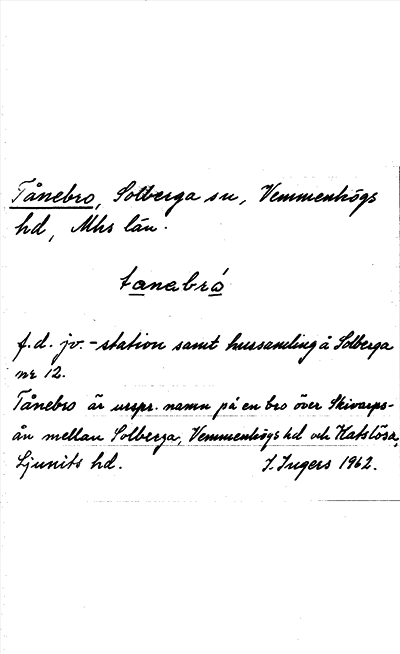 Tånebro, Solberga sn, Vemmenhögs
hd, Mhs län.
tanebró
f.d. jv.-station samt hussamling å Solberga
nr 12.
Tånebro är urspr. namn på en bro över Skivarps-
ån mellan Solberga, Vemmenhögs hd och Katslösa,
Ljunits hd. I. Ingers 1962.